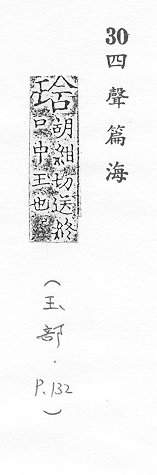 30四聲篇海
琀
胡紺切送終
口中玉也
（玉部．P.132）